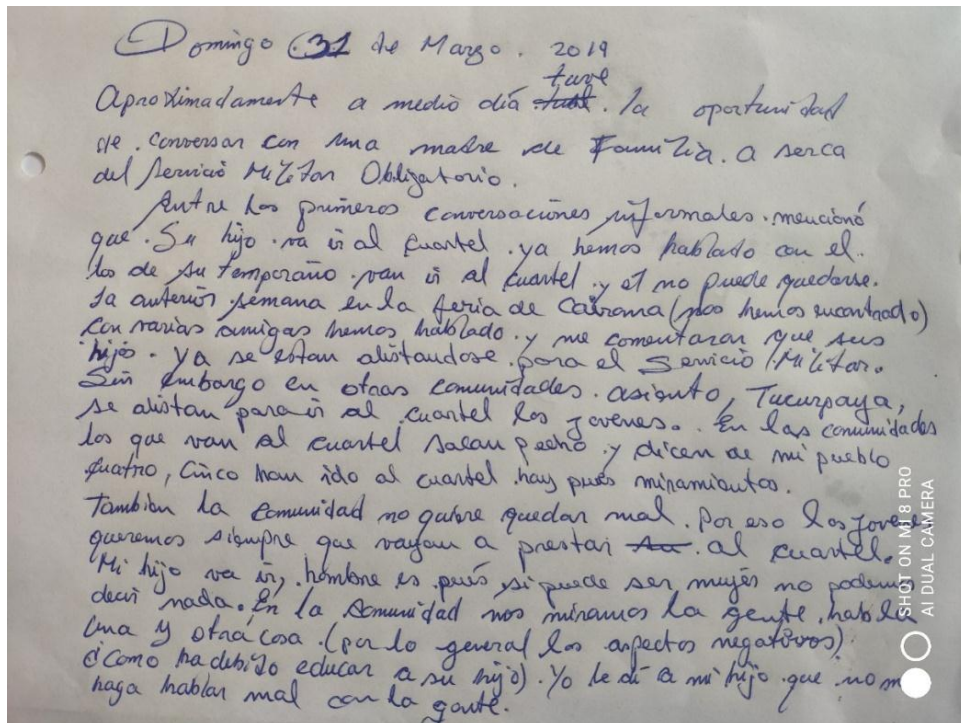 Domingo 31 de Marzo. 2019
tuve
Aproximadamente a medio día la oportunidad
de conversar con una madre de Familia. a serca
del Servicio Militar Obligatorio.
Entre las primeros conversaciones informales. mencionó
que. Su hijo. va ir al cuartel. ya hemos hablado con el.
los de su temporaño. van ir al cuartel. y el no puede quedarse.
La anterior semana en la feria de Cairoma (nos hemos encontrado)
con varias amigas hemos hablado. y me comentaron que sus
hijos. Ya se estan alistandose. para el Servicio Militar.
Sin embargo en otras comunidades. asiento, Tucurpaya,
se alistan para ir al cuartel los jovenes. En las comunidades
los que van al cuartel sacan pecho. y dicen de mi pueblo
cuatro, Cinco han ido al cuartel. hay pues miramientos.
Tambien la comunidad no quiere quedar mal. Por eso los jovenes
queremos siempre que vayan a prestar al cuartel.
Mi hijo va ir, hombre es pues, si puede ser mujer no podemos
decir nada. En la comunidad nos miramos la gente. habla
una y otra cosa. (por lo general los aspectos negativos)
¿como ha debido educar a su hijo). Yo le dí a mi hijo que no me
haga hablar mal con la gente.
SHOT ON MI 8 PRO
AI DUAL CAMERA